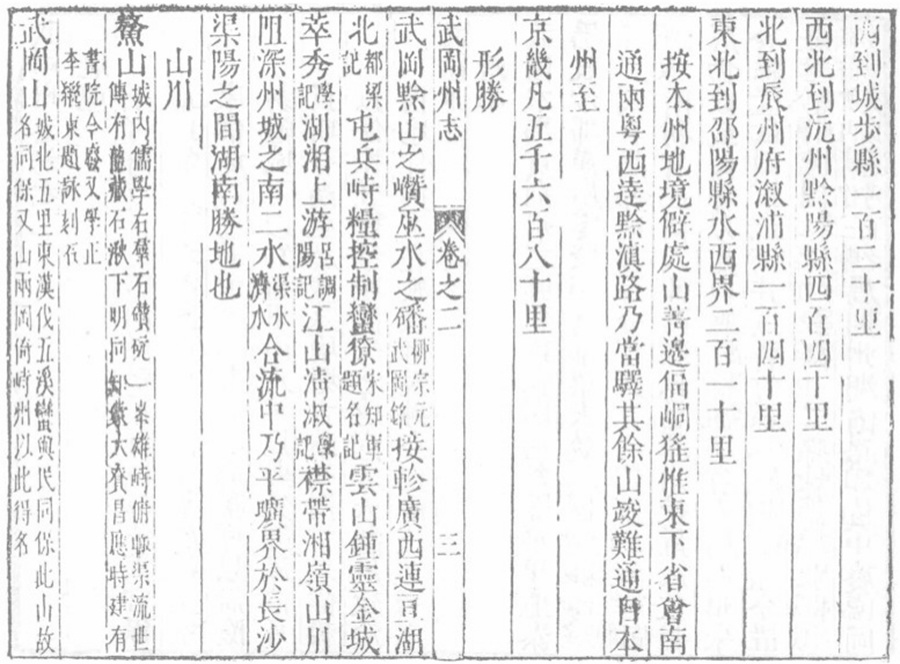 西到城步縣一百二十里
西北到沅州黔陽縣四百四十里
北到辰州府溆浦縣一百四十里
東北到邵陽縣水西界二百一十里
按本州地境僻處山菁邊偪峒猺惟東下省會南
通兩粵西達黔滇路乃當驛其餘山峻難通自本
州至
京畿凡五千六百八十里
形勝
武岡州志
卷之二
三
武岡黔山之巑巫水之磻柳宗元武岡銘接軫廣西連亘湖
北都梁記屯兵峙糧控制蠻獠宋知軍題名記雲山鍾靈金城
萃秀學記湖湘上游呂調陽記江山清淑學記襟帶湘嶺山川
阻深州城之南二水渠水濟水合流中乃平曠界於長沙
渠陽之間湖南勝地也
山川
鰲山城内儒學右羣石巑岏一峯雄峙俯瞰渠流世
傳有龍藏石湫下明同知大賚昌應時建有
書院今廢又學正
李東題詠刻石
武岡山城北五里東漢伐五溪蠻與民同保此山故
名同保又山兩岡倚峙州以此得名